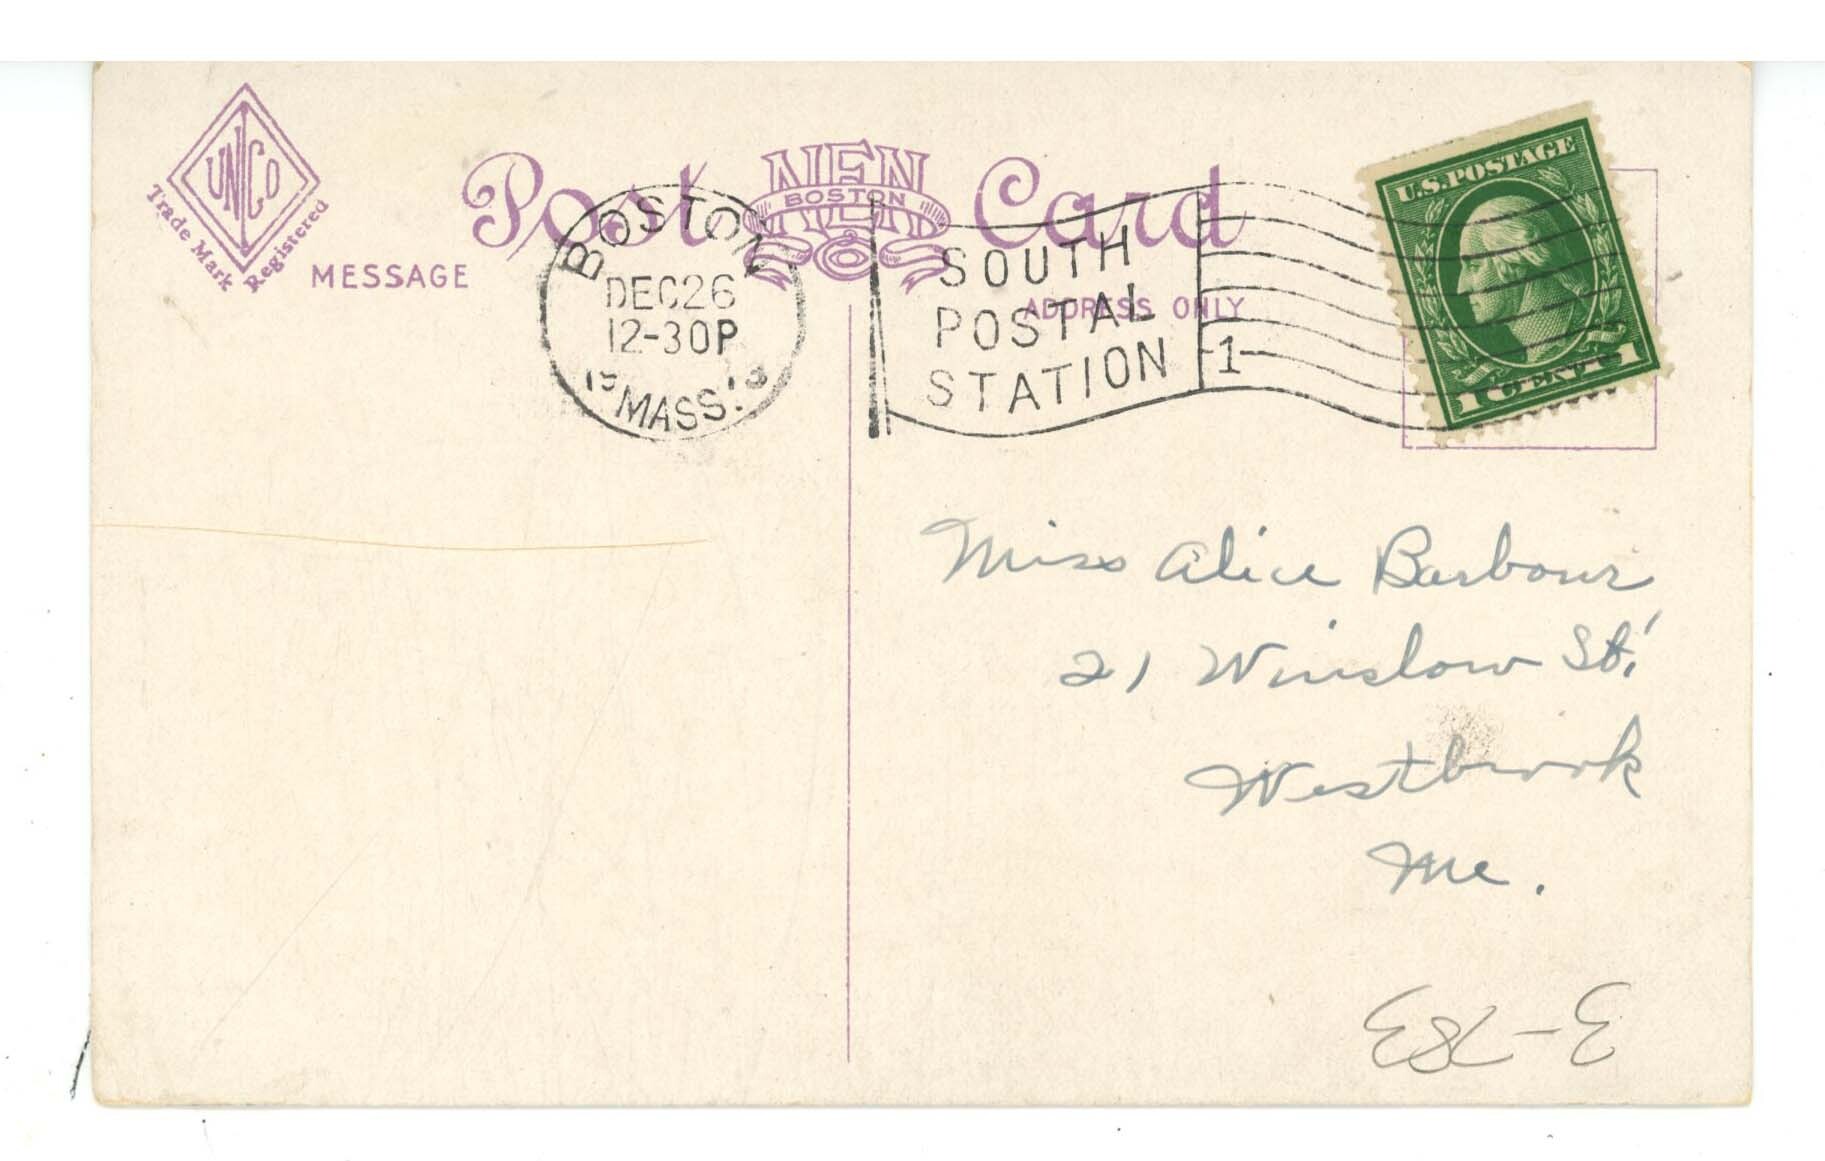 UNCO
Trade Mark Registered
Post NEN Card
BOSTON
MESSAGE
ADDRESS ONLY
BOSTON
DEC 26
12-30P
MASS.
SOUTH
POSTAL
STATION
1
U.S. POSTAGE
1 CENT 1
Miss Alice Barbour
21 Winslow St.
Westbrook
Me.